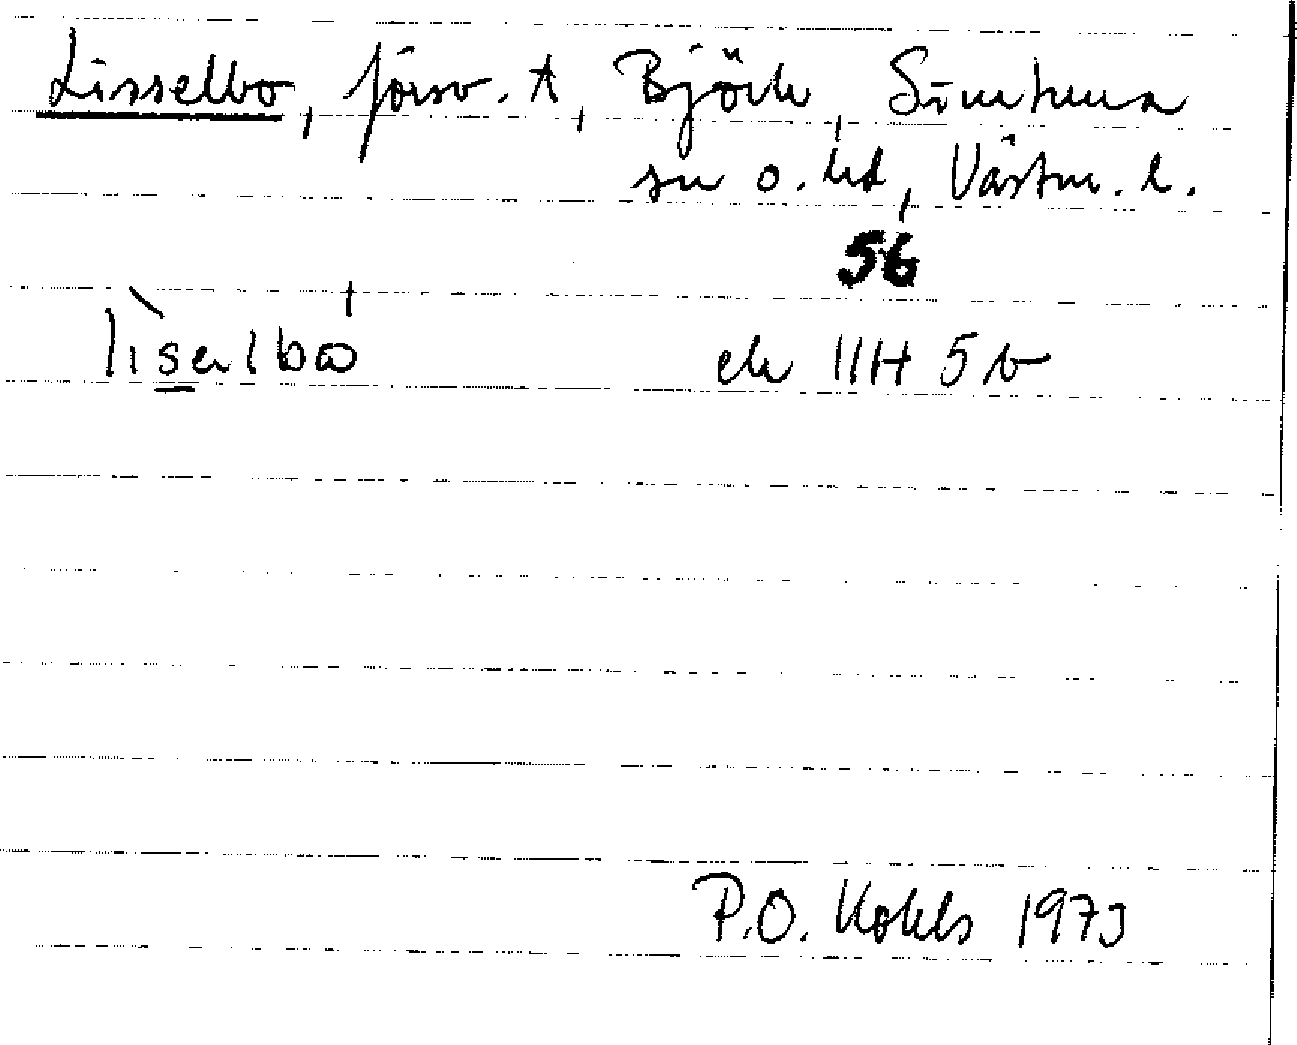 Lisselbo, försv. t, Björk, Simtuna
sn o. hd, Västm. l.
56
lìsɐlbω
ek 11H 5b
P.O. Kohls 1973